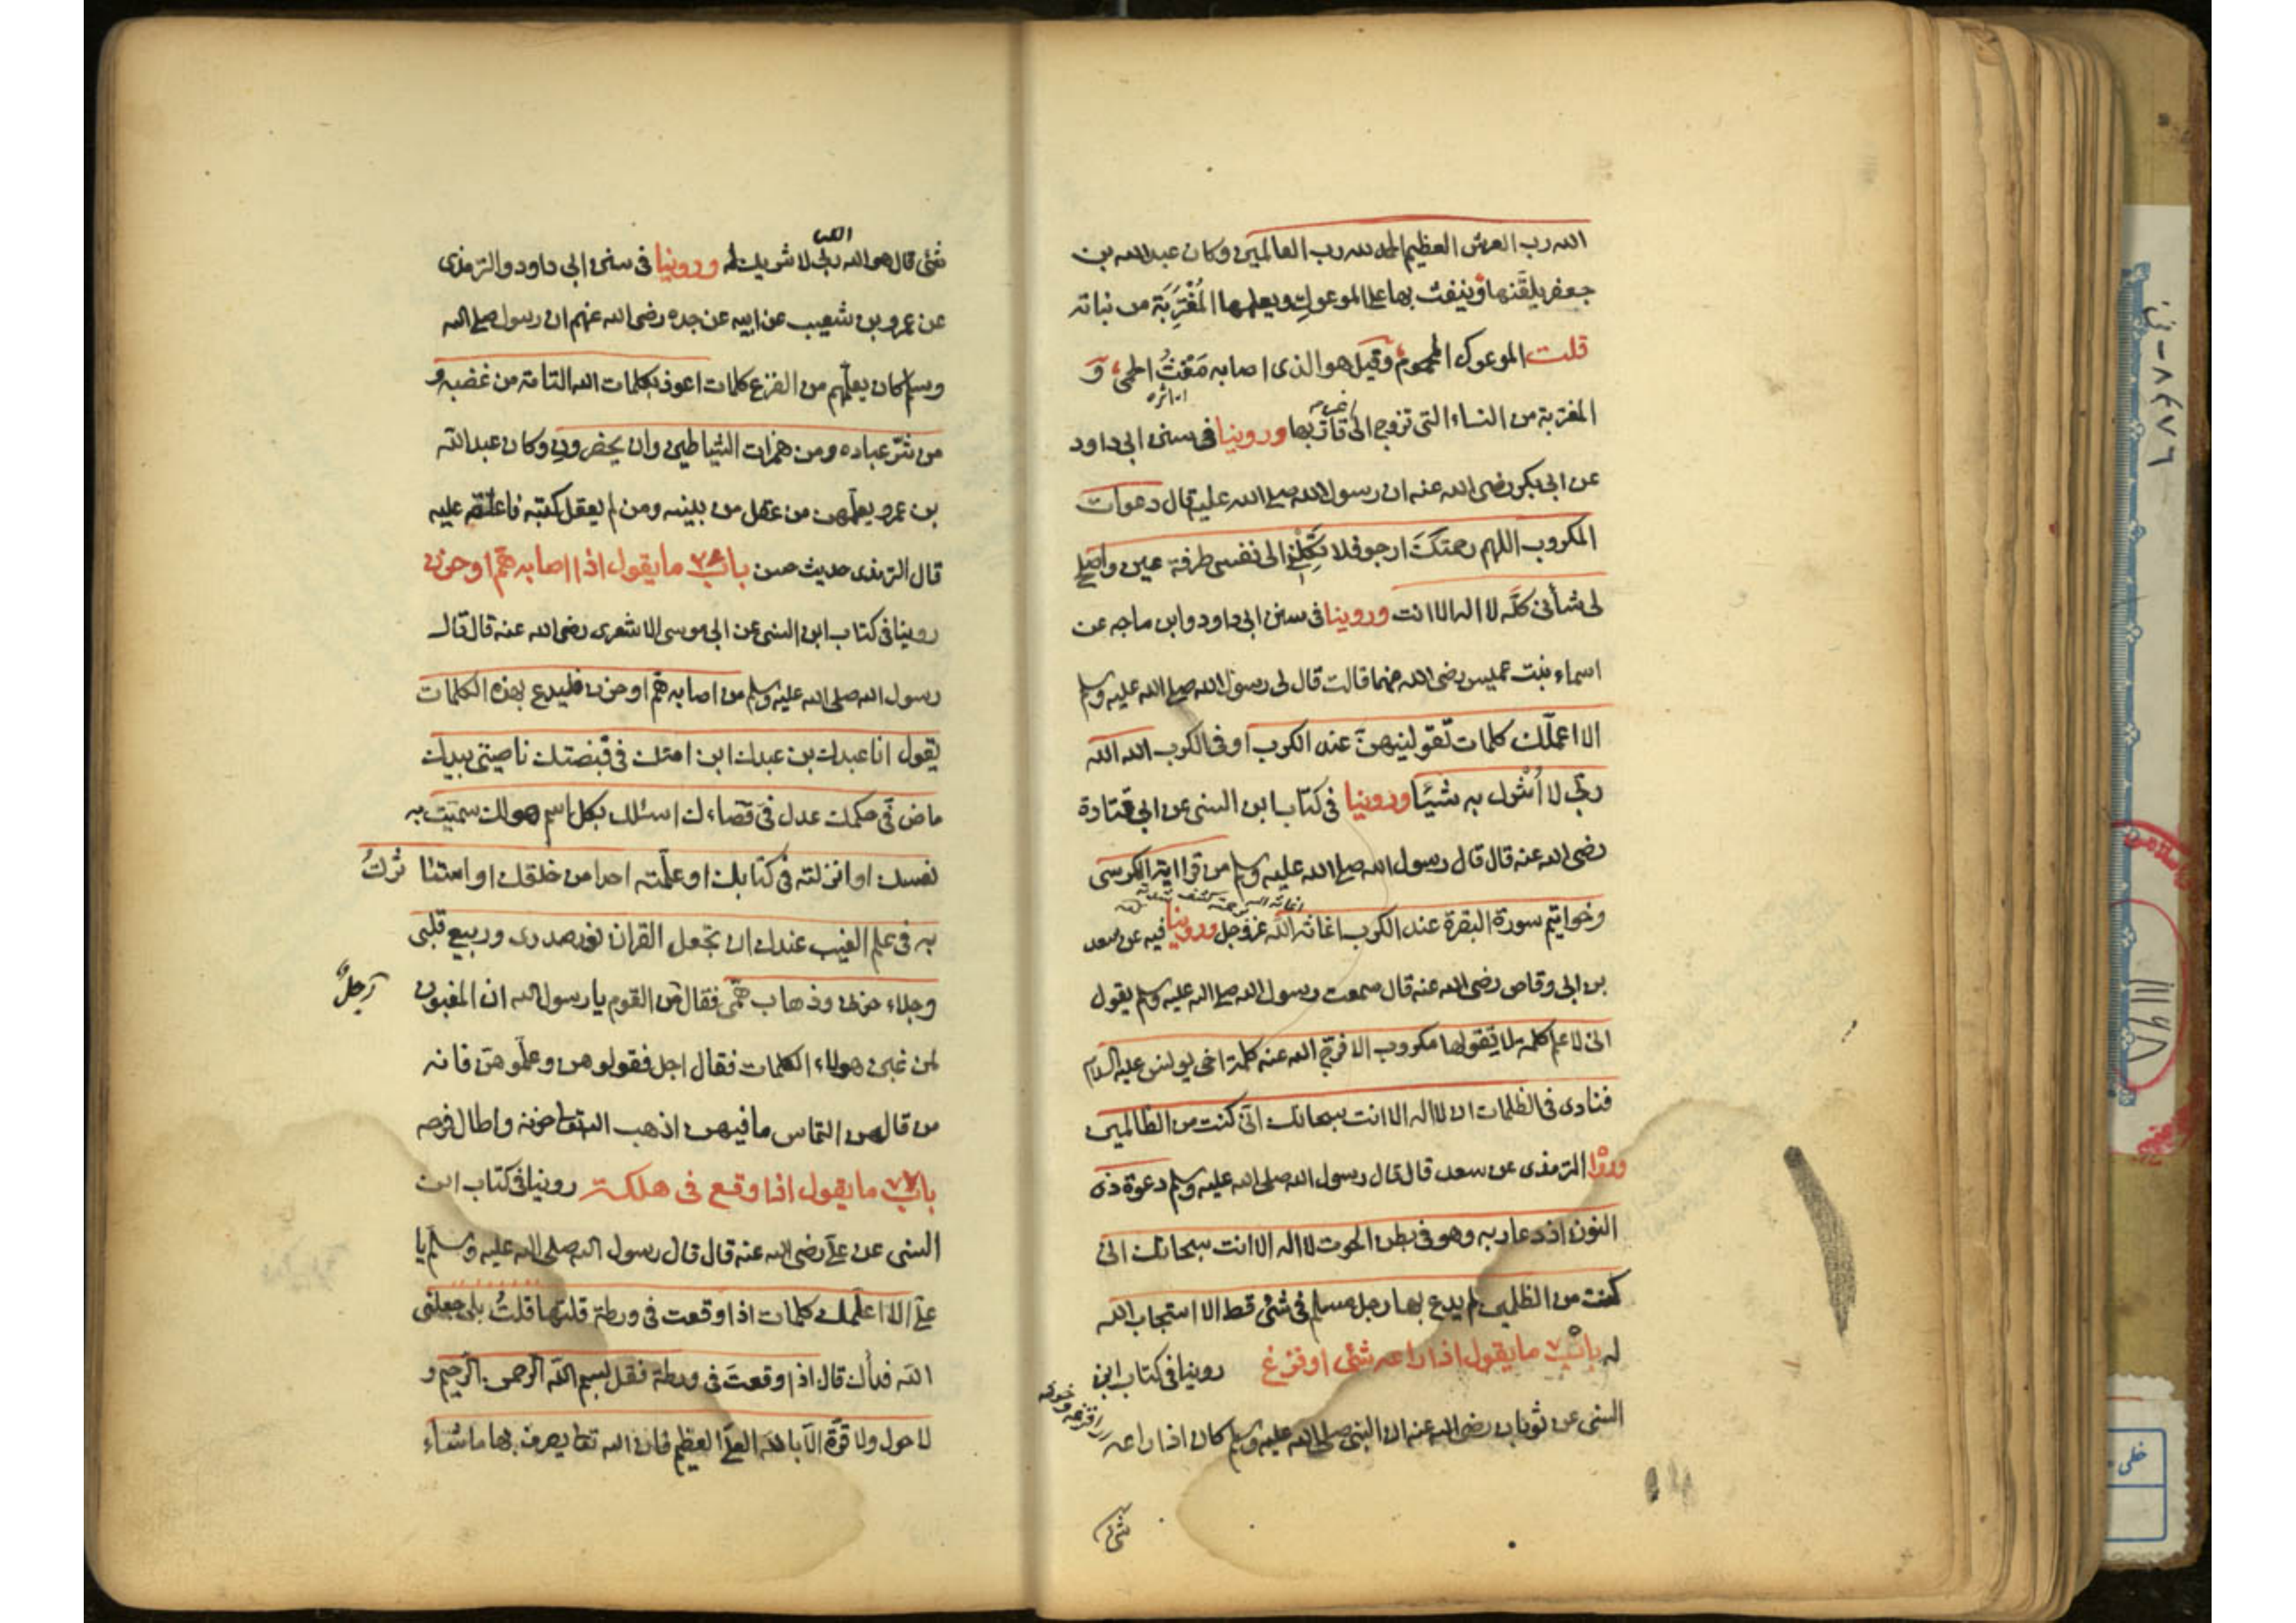 الله رب العرش العظيم الحمد لله رب العالمين وكان عبدالله بن
جعفر يلقنها وينفث بها على الموعوك ويعلمها المُغْتَرِبَة من بناته
قلت الموعوك المحموم وقيل هو الذى اصابه مَغْثُ الحمى و
المغتربة من النساء التى تزوج الى غير اقاربها وروينا فى سنن ابى داود
عن ابى بكرة رضى الله عنه ان رسول الله صلى الله عليه قال دعوات
المكروب اللهم رحمتك ارجو فلا تَكِلْنِى الى نفسى طرفة عين واصلح
لى شأنى كلَّه لا اله الا انت وروينا فى سنن ابى داود وابن ماجه عن
اسماء بنت عميس رضى الله عنها قالت قال لى رسول الله صلى الله عليه وسلم
الا اعلّمك كلمات تقولينهنّ عند الكرب او فى الكرب الله الله
ربى لا اُشرك به شيئًا وروينا فى كتاب ابن السنى عن ابى قتادة
رضى الله عنه قال قال رسول الله صلى الله عليه وسلم من قرا اية الكرسى
وخواتيم سورة البقرة عند الكرب اغاثه الله عز وجل وروينا فيه عن سعد
بن ابى وقاص رضى الله عنه قال سمعت رسول الله صلى الله عليه وسلم يقول
انى لاعلم كلمة لا يقولها مكروب الا فرّج الله عنه كلمة اخى يونس عليه السلام
فنادى فى الظلمات ان لا اله الا انت سبحانك انى كنت من الظالمين
وروا الترمذى عن سعد قال قال رسول الله صلى الله عليه وسلم دعوة ذى
النون اذ دعا ربه وهو فى بطن الحوت لا اله الا انت سبحانك انى
كنت من الظلمين لم يدع بها رجل مسلم فى شئ قط الا استجاب الله
له باب ما يقول اذا راعه شئ او فزع روينا فى كتاب ابن
السنى عن ثوبان رضى الله عنه ان النبى صلى الله عليه وسلم كان اذا راعه
شئ
شئ قال هو الله ربى لا شريك له وروينا فى سنن ابى داود والترمذى
عن عمرو بن شعيب عن ابيه عن جده رضى الله عنهم ان رسول صلى الله
وسلم كان يعلّمهم من الفزع كلمات اعوذ بكلمات الله التامة من غضبه و
من شرّ عباده ومن همزات الشياطين وان يحضرون وكان عبدالله
بن عمرو يعلّمهن من عقل من بنيه ومن لم يعقل كتبه فاعلقه عليه
قال الترمذى حديث حسن باب ما يقول اذا اصابه همّ او حزن
روينا فى كتاب ابن السنى عن ابى موسى الاشعرى رضى الله عنه قال قال
رسول الله صلى الله عليه وسلم من اصابه همّ او حزن فليدع بهذه الكلمات
يقول انا عبدك بن عبدك ابن امتك فى قبضتك ناصيتى بيدك
ماض فى حكمك عدل فى قضاءك اسئلك بكل اسم هو لك سميت به
نفسك او انزلته فى كتابك او علّمته احدا من خلقك او استاثرتَ
به فى علم الغيب عندك ان تجعل القران نور صدرى وربيع قلبى
وجلاء حزنى وذهاب همّى فقال من القوم يا رسول الله ان المغبون
رجلٌ
لمن غبن هولاء الكلمات فقال اجل فقولوهن وعلّموهنّ فانه
من قالهن التماس ما فيهن اذهب الله تعا حزنه واطال فرحه
باب ما يقول اذا وقع فى هلكة روينا فى كتاب ابن
السنى عن على رضى الله عنه قال قال رسول الله صلى الله عليه وسلم يا
على الا اعلّمك كلمات اذا وقعت فى ورطة قلتها قلتُ بلى جعلنى
الله فداك قال اذا وقعتَ فى ورطة فقل بسم الله الرحمن الرحيم و
لا حول ولا قوّة الّا بالله العلىّ العظيم فان الله تعا يصرف بها ما شاء
خطى